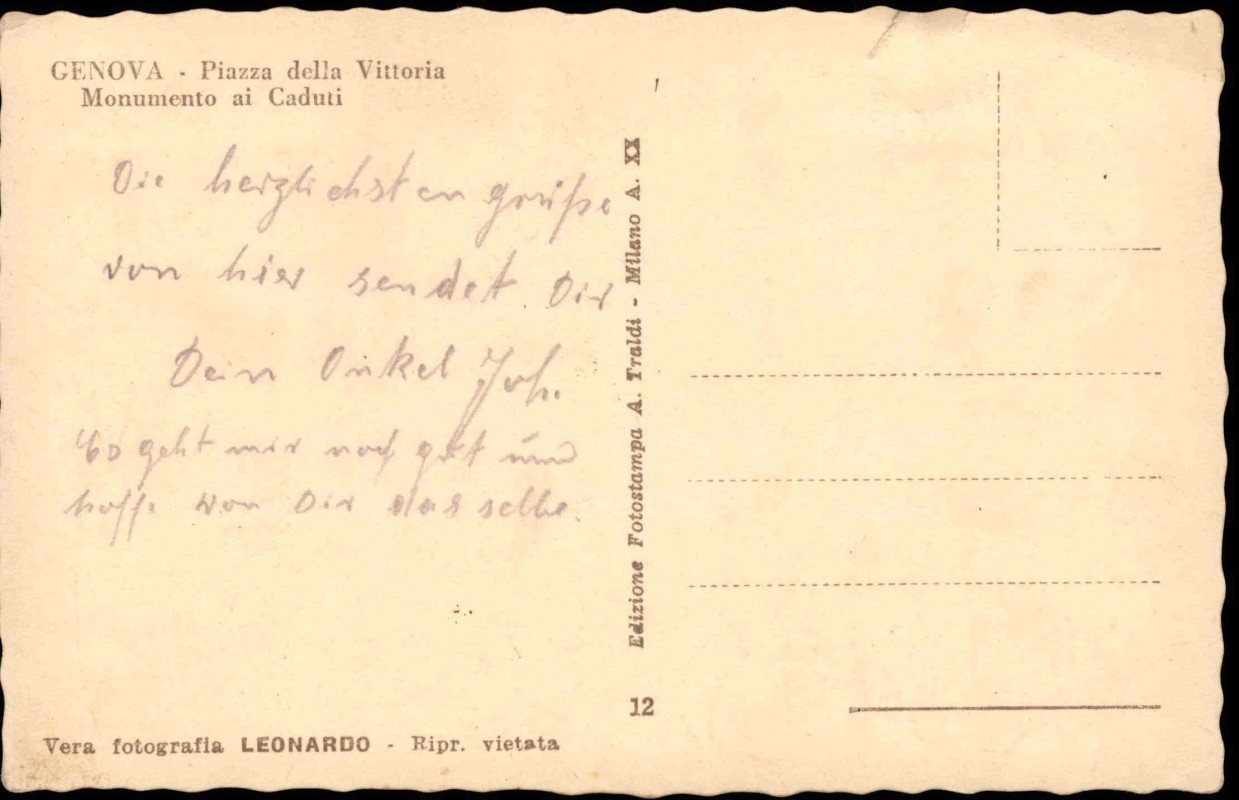 GENOVA - Piazza della Vittoria
Monumento ai Caduti
Die herzlichsten grüße
von hier sendet Dir
Dein Onkel Joh.
Es geht mir noch gut und
hoffe von Dir dasselbe.
Edizione Fotostampa A. Traldi - Milano A. XX
12
Vera fotografia LEONARDO - Ripr. vietata